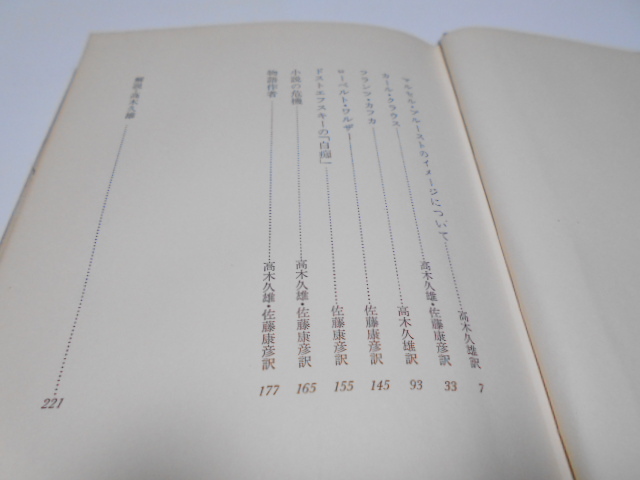 マルセル・プルーストのイメージについて……高木久雄訳 7
カール・クラウス……高木久雄・佐藤康彦訳 33
フランツ・カフカ……高木久雄訳 93
ローベルト・ワルザー……佐藤康彦訳 145
ドストエフスキーの『白痴』……佐藤康彦訳 155
小説の危機……高木久雄・佐藤康彦訳 165
物語作者……高木久雄・佐藤康彦訳 177
解説・高木久雄……221